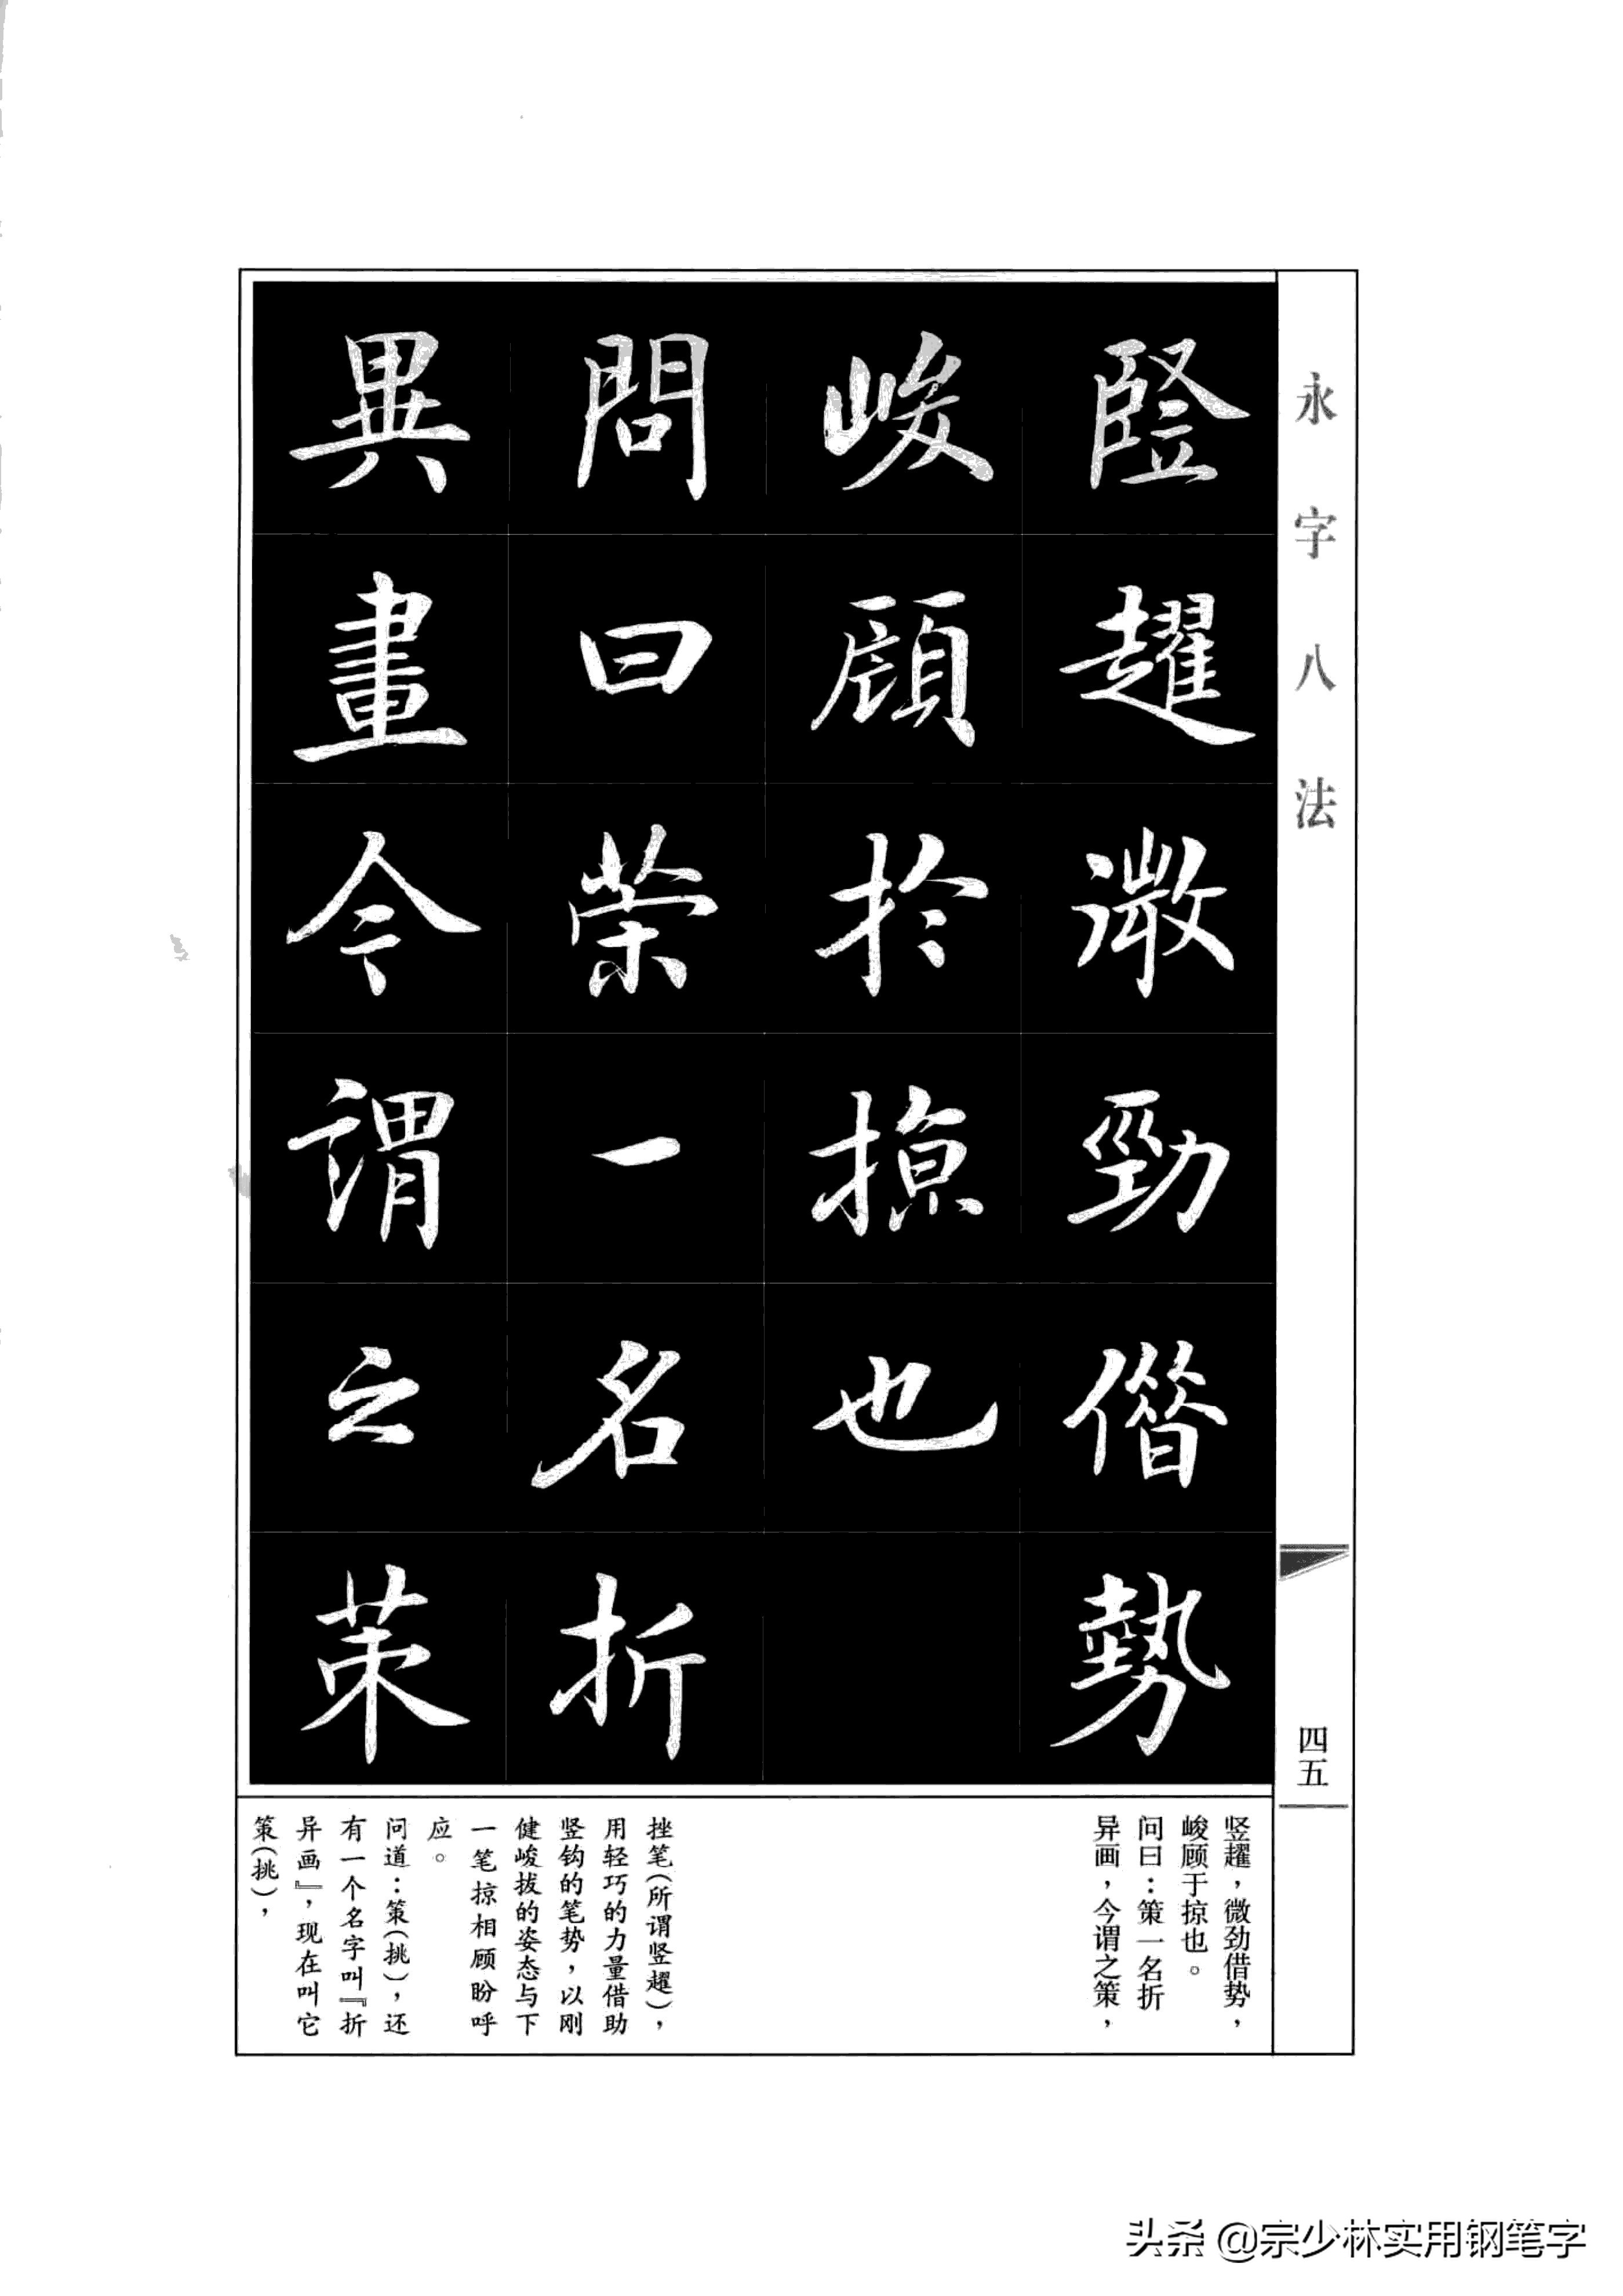 永字八法
四五
竪趯微勁借勢
峻顧於掠也
問曰策一名折
異畫今謂之策
竖趯，微劲借势，
峻顾于掠也。
问曰：策一名折
异画，今谓之策，
挫笔(所谓竖趯)，
用轻巧的力量借助
竖钩的笔势，以刚
健峻拔的姿态与下
一笔掠相顾盼呼
应。
问道：策(挑)，还
有一个名字叫『折
异画』，现在叫它
策(挑)，
头条 @宗少林实用钢笔字